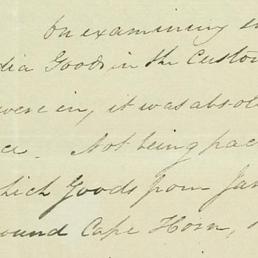 On examining
dia Goods in the Custo
were in, it was absol
ce. Not being pac
hich Goods from Jan
ound Cape Horn,